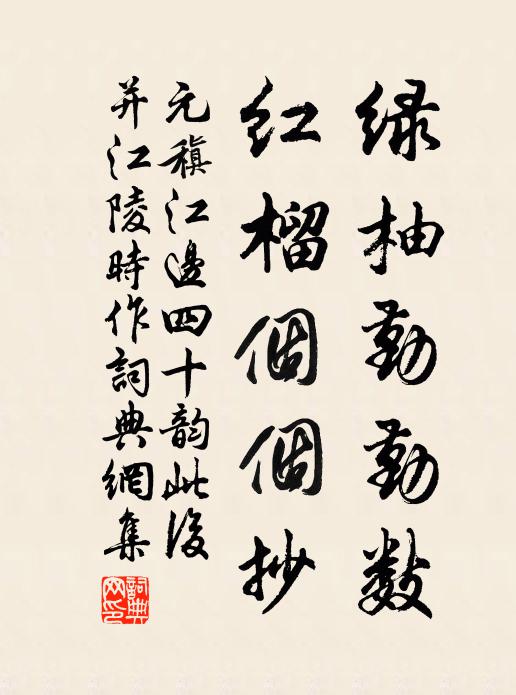 绿柚勤勤數
红榴個個抄
元稹江邊四十韵此後
并江陵時作詞典網集
詞典網印